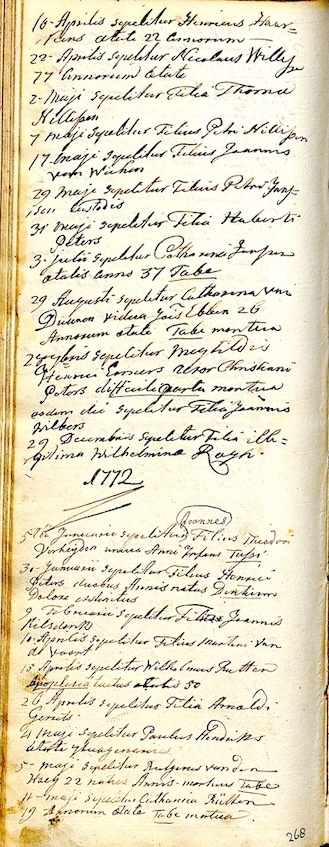 16 Aprilis sepelitur Henricus Haur=
kens ætate 22 annorum
22 Aprilis sepelitur Nicolaus Willem
77 annorum ætate
2 Maji sepelitur Filia Thoma
Nellissen
7 Maji sepelitur Filius Petri Nellissen
17 Maji sepelitur Filius Joannis
van
29 Maji sepelitur Filius Petri
Custodis
31 Maji sepelitur Filia Huberti
Peters
3 Julii sepelitur Catharina
ætatis anno 37 Tabe
29 Augusti sepelitur Catharina van
vidua Ebben 26
Annorum ætate Tabe mortua
sepelitur Megtildis
Henrici uxor Christiani
Peters difficile partu mortua
eodem die sepelitur Filia Joannis
Wilbers
29 Decembris sepelitur Filia ille=
gitima Wilhelmina
1772
Joannes
5 Januarii sepelitur Filius Theodori
Verheyden unius Anni Infans Tussi
30 Januarii sepelitur Filius Henrici
Peters duobus Annis natus Dentium
Dolore
9 sepelitur Filius Joannis
10 Aprilis sepelitur Filius Martini van
de Voort
15 Aprilis sepelitur Wilhelmus Rutten
Apoplexia tactus ætatis 50
26 Aprilis sepelitur Filia Arnoldi
Gerits
21 Maji sepelitur Paulus Hendriks
ætate
5 Maji sepelitur Rutgerus van den
22 natus Annis mortuus Tabe
11 Maji sepelitur Catharina Rütten
19 Annorum ætate Tabe mortua
268